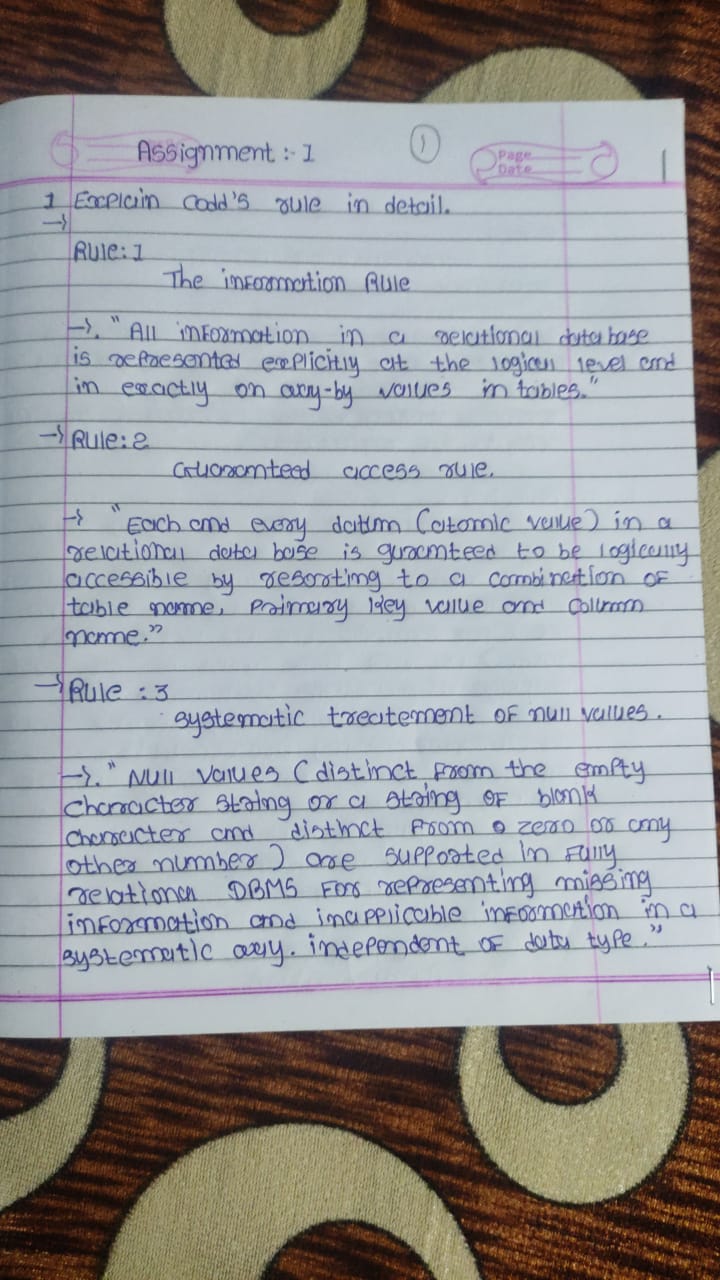 Assignment :- I
1
Page
Date
1
1 Explain Codd's rule in detail.
→
Rule: 1
The information Rule
→. "All information in a relational database
is represented explicitly at the logical level and
in exactly on way-by values in tables."
→ Rule: 2
Guaranteed access rule.
→ "Each and every datum (atomic value) in a
relational data base is guranteed to be logically
accessible by resorting to a combination of
table name, primary key value and collumn
name."
→ Rule : 3
systematic treatement of null values.
→. "Null values (distinct from the empty
character string or a string of blank
character and distinct from a zero or any
other number) are supported in fully
relational DBMS for representing missing
information and inapplicable information in a
systematic way. independent of data type."